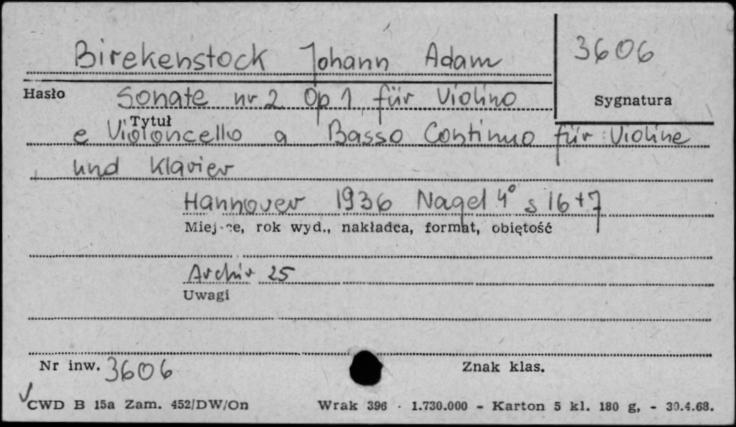 Birekenstock Johann Adam
3606
Hasło
Sygnatura
Sonate nr 2 Op 1 für Violino
Tytuł
e Violoncello a Basso Continuo für Violine
und Klavier
Hannover 1936 Nagel 4° s 16+7
Miejsce, rok wyd., nakładca, format, objętość
Archiv 25
Uwagi
Nr inw. 3606
Znak klas.
CWD B 15a Zam. 452/DW/On Wrak 396 - 1.730.000 - Karton 5 kl. 180 g, - 30.4.68.